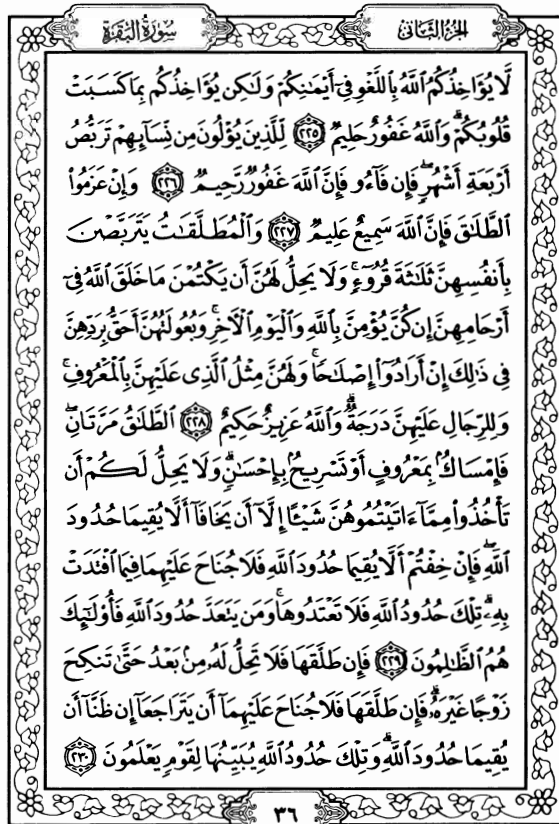 الجزء الثاني
سورة البقرة
لَّا يُؤَاخِذُكُمُ اللَّهُ بِاللَّغْوِ فِي أَيْمَانِكُمْ وَلَٰكِن يُؤَاخِذُكُم بِمَا كَسَبَتْ
قُلُوبُكُمْ ۗ وَاللَّهُ غَفُورٌ حَلِيمٌ ٢٢٥ لِّلَّذِينَ يُؤْلُونَ مِن نِّسَائِهِمْ تَرَبُّصُ
أَرْبَعَةِ أَشْهُرٍ ۖ فَإِن فَاءُو فَإِنَّ اللَّهَ غَفُورٌ رَّحِيمٌ ٢٢٦ وَإِنْ عَزَمُوا
الطَّلَاقَ فَإِنَّ اللَّهَ سَمِيعٌ عَلِيمٌ ٢٢٧ وَالْمُطَلَّقَاتُ يَتَرَبَّصْنَ
بِأَنفُسِهِنَّ ثَلَاثَةَ قُرُوءٍ ۚ وَلَا يَحِلُّ لَهُنَّ أَن يَكْتُمْنَ مَا خَلَقَ اللَّهُ فِي
أَرْحَامِهِنَّ إِن كُنَّ يُؤْمِنَّ بِاللَّهِ وَالْيَوْمِ الْآخِرِ ۚ وَبُعُولَتُهُنَّ أَحَقُّ بِرَدِّهِنَّ
فِي ذَٰلِكَ إِنْ أَرَادُوا إِصْلَاحًا ۚ وَلَهُنَّ مِثْلُ الَّذِي عَلَيْهِنَّ بِالْمَعْرُوفِ ۚ
وَلِلرِّجَالِ عَلَيْهِنَّ دَرَجَةٌ ۗ وَاللَّهُ عَزِيزٌ حَكِيمٌ ٢٢٨ الطَّلَاقُ مَرَّتَانِ ۖ
فَإِمْسَاكٌ بِمَعْرُوفٍ أَوْ تَسْرِيحٌ بِإِحْسَانٍ ۗ وَلَا يَحِلُّ لَكُمْ أَن
تَأْخُذُوا مِمَّا آتَيْتُمُوهُنَّ شَيْئًا إِلَّا أَن يَخَافَا أَلَّا يُقِيمَا حُدُودَ
اللَّهِ ۖ فَإِنْ خِفْتُمْ أَلَّا يُقِيمَا حُدُودَ اللَّهِ فَلَا جُنَاحَ عَلَيْهِمَا فِيمَا افْتَدَتْ
بِهِ ۗ تِلْكَ حُدُودُ اللَّهِ فَلَا تَعْتَدُوهَا ۚ وَمَن يَتَعَدَّ حُدُودَ اللَّهِ فَأُولَٰئِكَ
هُمُ الظَّالِمُونَ ٢٢٩ فَإِن طَلَّقَهَا فَلَا تَحِلُّ لَهُ مِن بَعْدُ حَتَّىٰ تَنكِحَ
زَوْجًا غَيْرَهُ ۗ فَإِن طَلَّقَهَا فَلَا جُنَاحَ عَلَيْهِمَا أَن يَتَرَاجَعَا إِن ظَنَّا أَن
يُقِيمَا حُدُودَ اللَّهِ ۗ وَتِلْكَ حُدُودُ اللَّهِ يُبَيِّنُهَا لِقَوْمٍ يَعْلَمُونَ ٢٣٠
٣٦